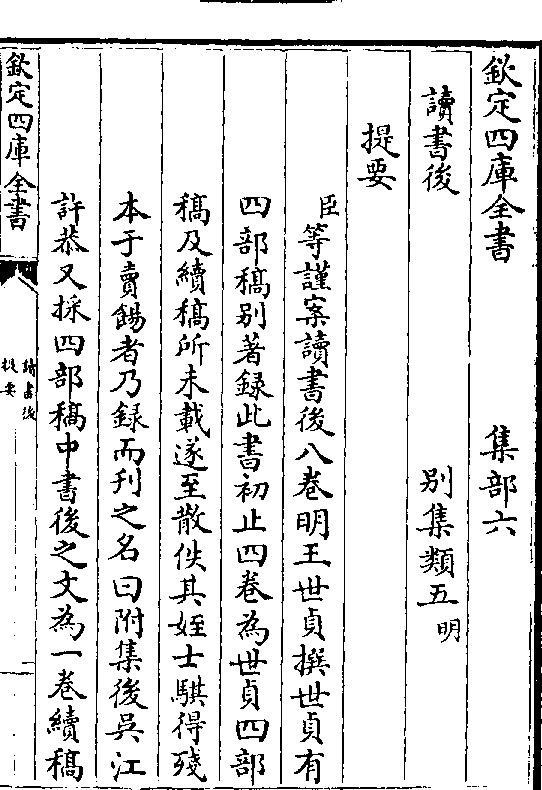 欽定四庫全書 集部六
讀書後 別集類五明
提要
臣等謹案讀書後八卷明王世貞撰世貞有
四部稿别著録此書初止四卷為世貞四部
稿及續稿所未載遂至散佚其姪士騏得殘
本于賣餳者乃録而刊之名曰附集後吳江
許恭又採四部稿中書後之文為一卷續稿
欽定四庫全書
讀書後
提要
一